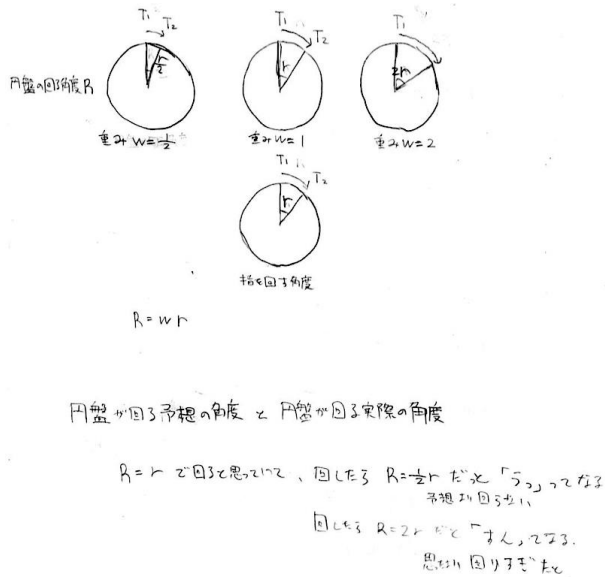 T₁ T₂ T₁ T₂ T₁
円盤の回る角度 R r/2 r 2r
重み W=1/2 重み W=1 重み W=2
T₁ T₂
r
指を回す角度
R = w r
円盤が回る予想の角度 と 円盤が回る実際の角度
R=r で回ると思っていて、回したら R=1/2r だと「うっ」ってなる
予想より回らない
回したら R=2r だと「すん」てなる.
思たより 回りすぎ だと